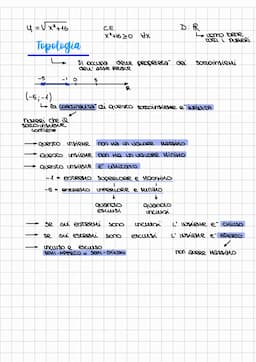 y = √x²+16 C.E. D: R
x²+16≥0 ∀x ↳ sono tutti i numeri
Topologia
↳ Si occupa delle proprietà dei sottoinsiemi dell'asse reale
-5 -1 0 5
R
(-5; -1)
↳ La cardinalità di questo sottoinsieme è infinita
numeri che il sottoinsieme contiene
→ questo insieme non ha un valore massimo
→ questo insieme non ha un valore minimo
→ questo insieme è limitato
-1 = estremo superiore e massimo
-5 = estremo inferiore e minimo
quando esclusi quando inclusi
→ se gli estremi sono inclusi l'insieme è chiuso
→ se gli estremi sono esclusi l'insieme è aperto
→ incluso e escluso semi-aperto o semi-chiuso
non avere massimo